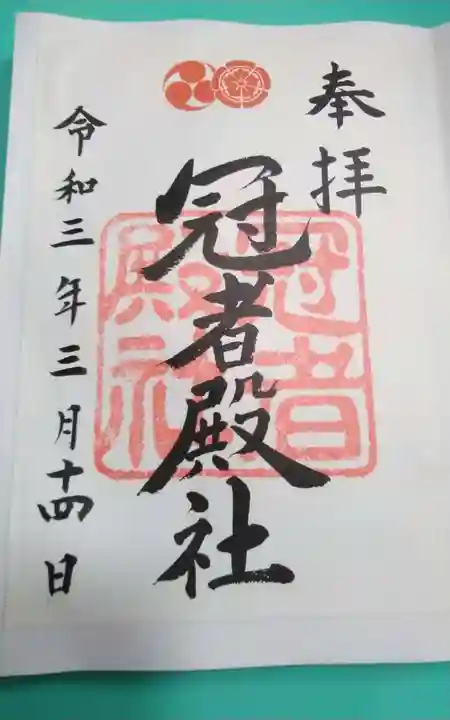 奉拝
冠者殿社
冠者殿社
令和三年三月十四日